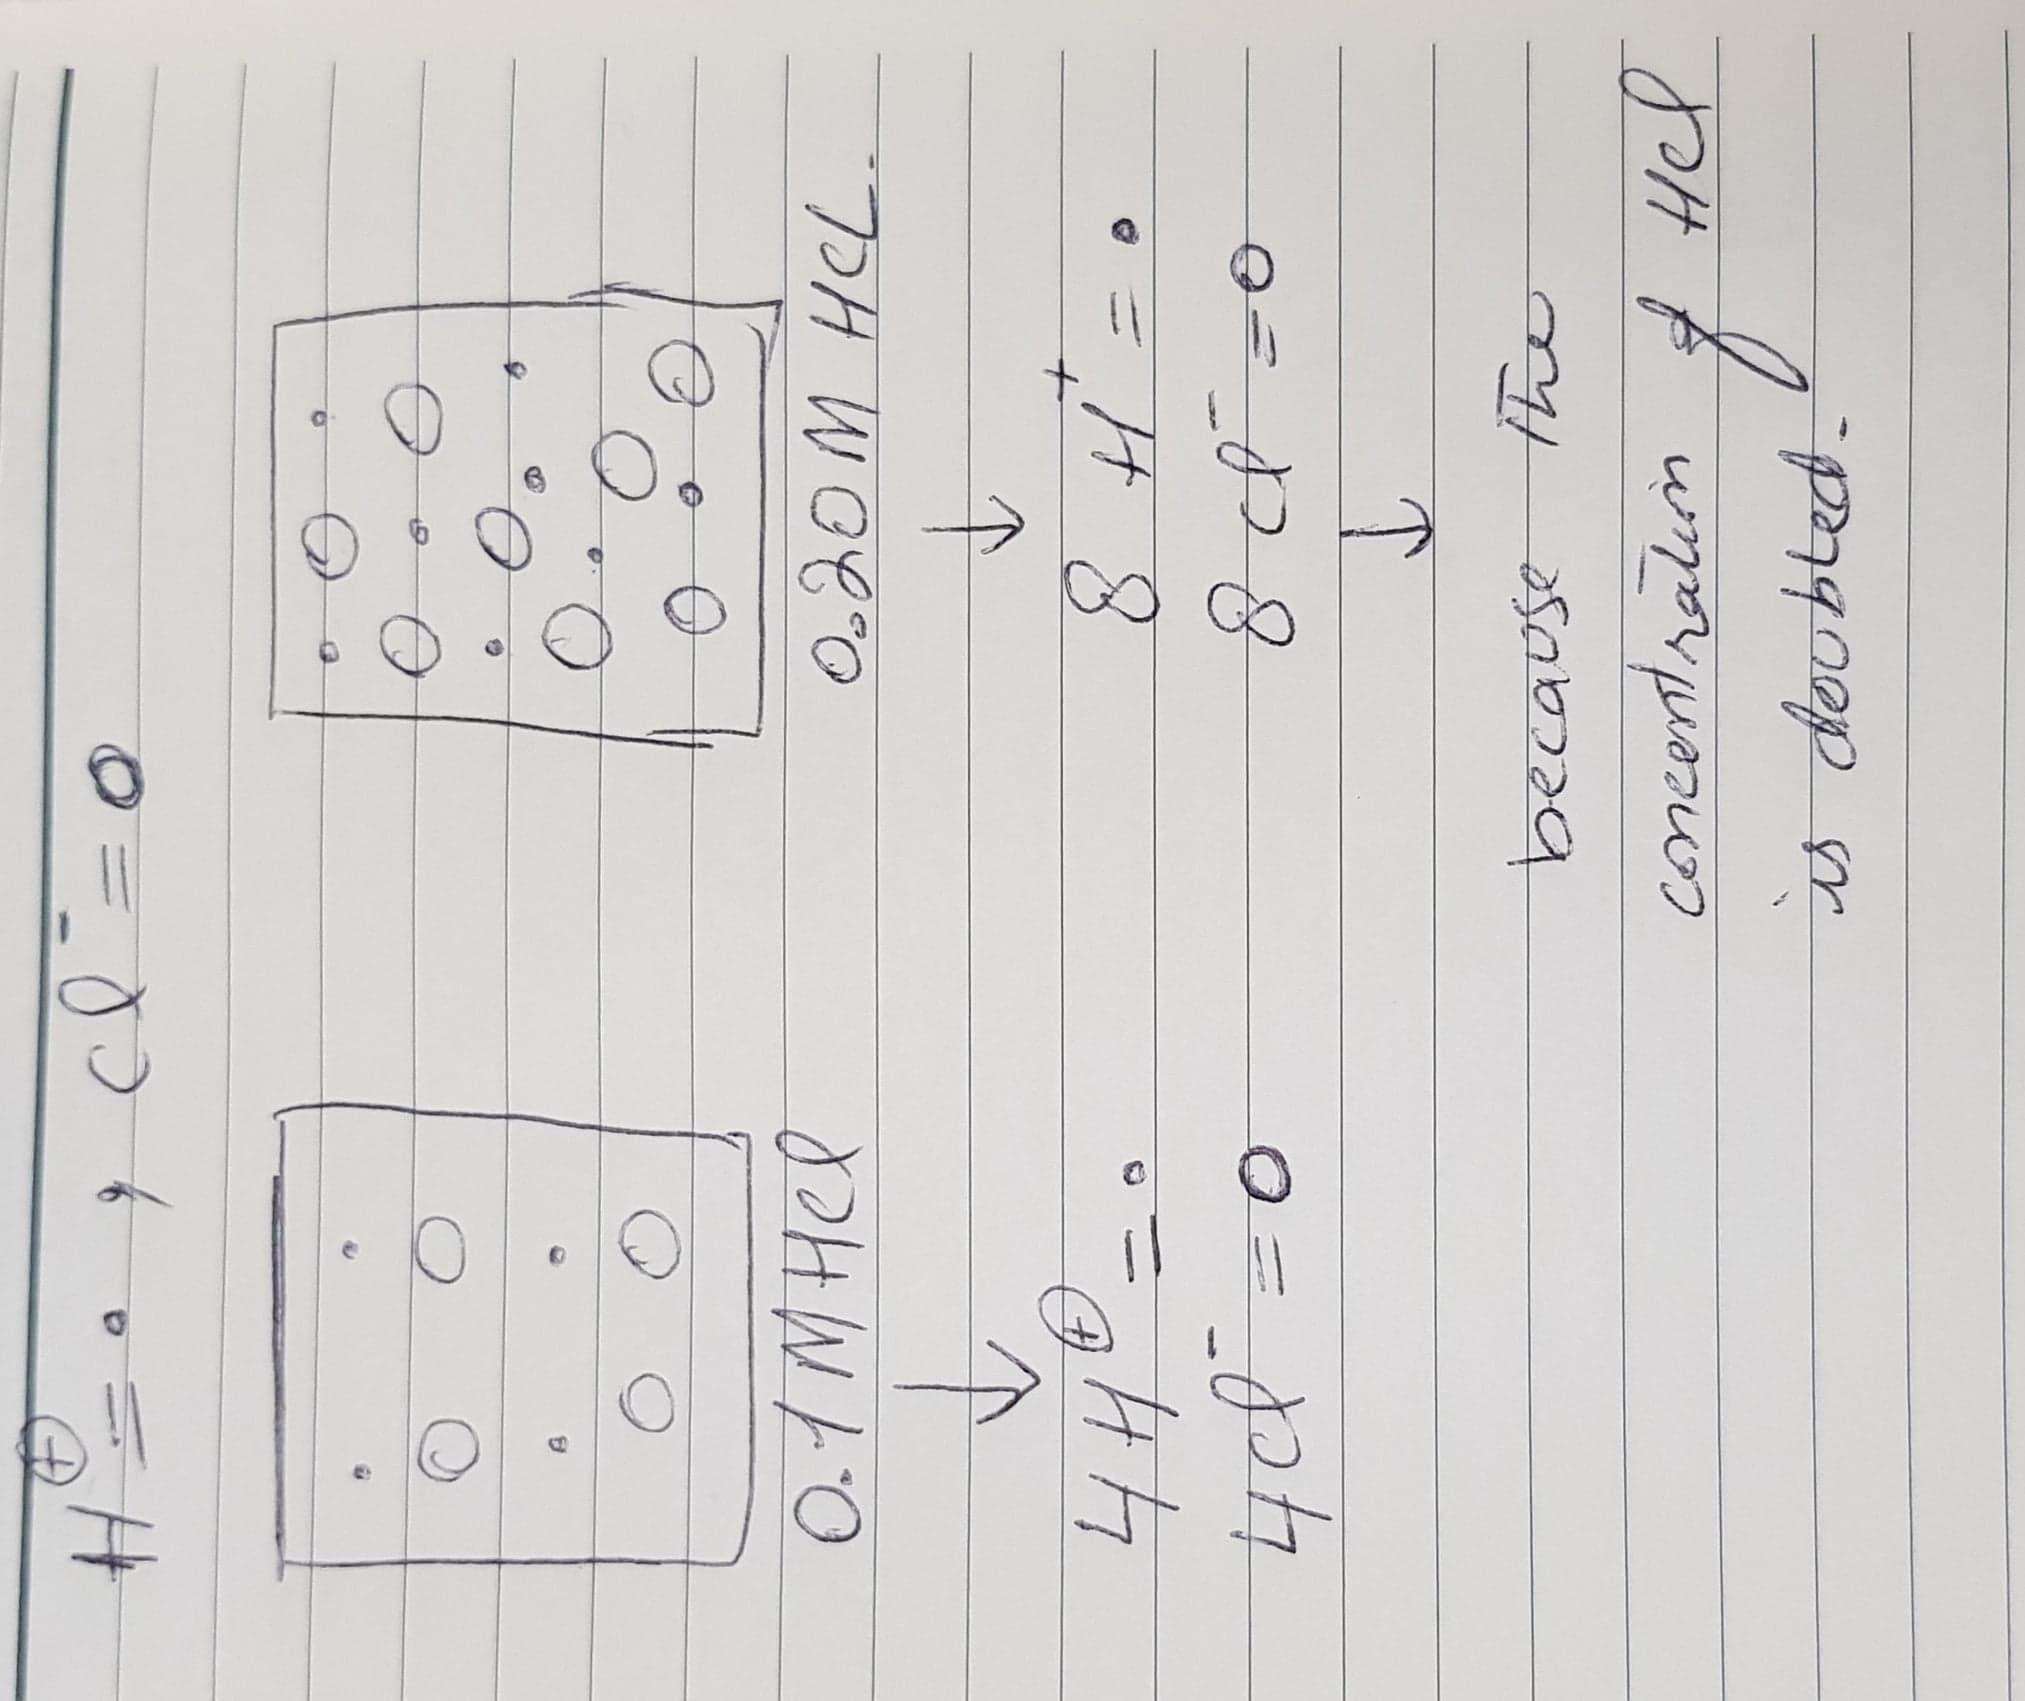 H⊕ = • , Cl⁻ = O
0.1 M HCl
0.20 M HCL.
4 H⊕ = •
8 H⁺ = •
4 Cl⁻ = O
8 Cl⁻ = O
because The
concentration of HCl
is doubled.